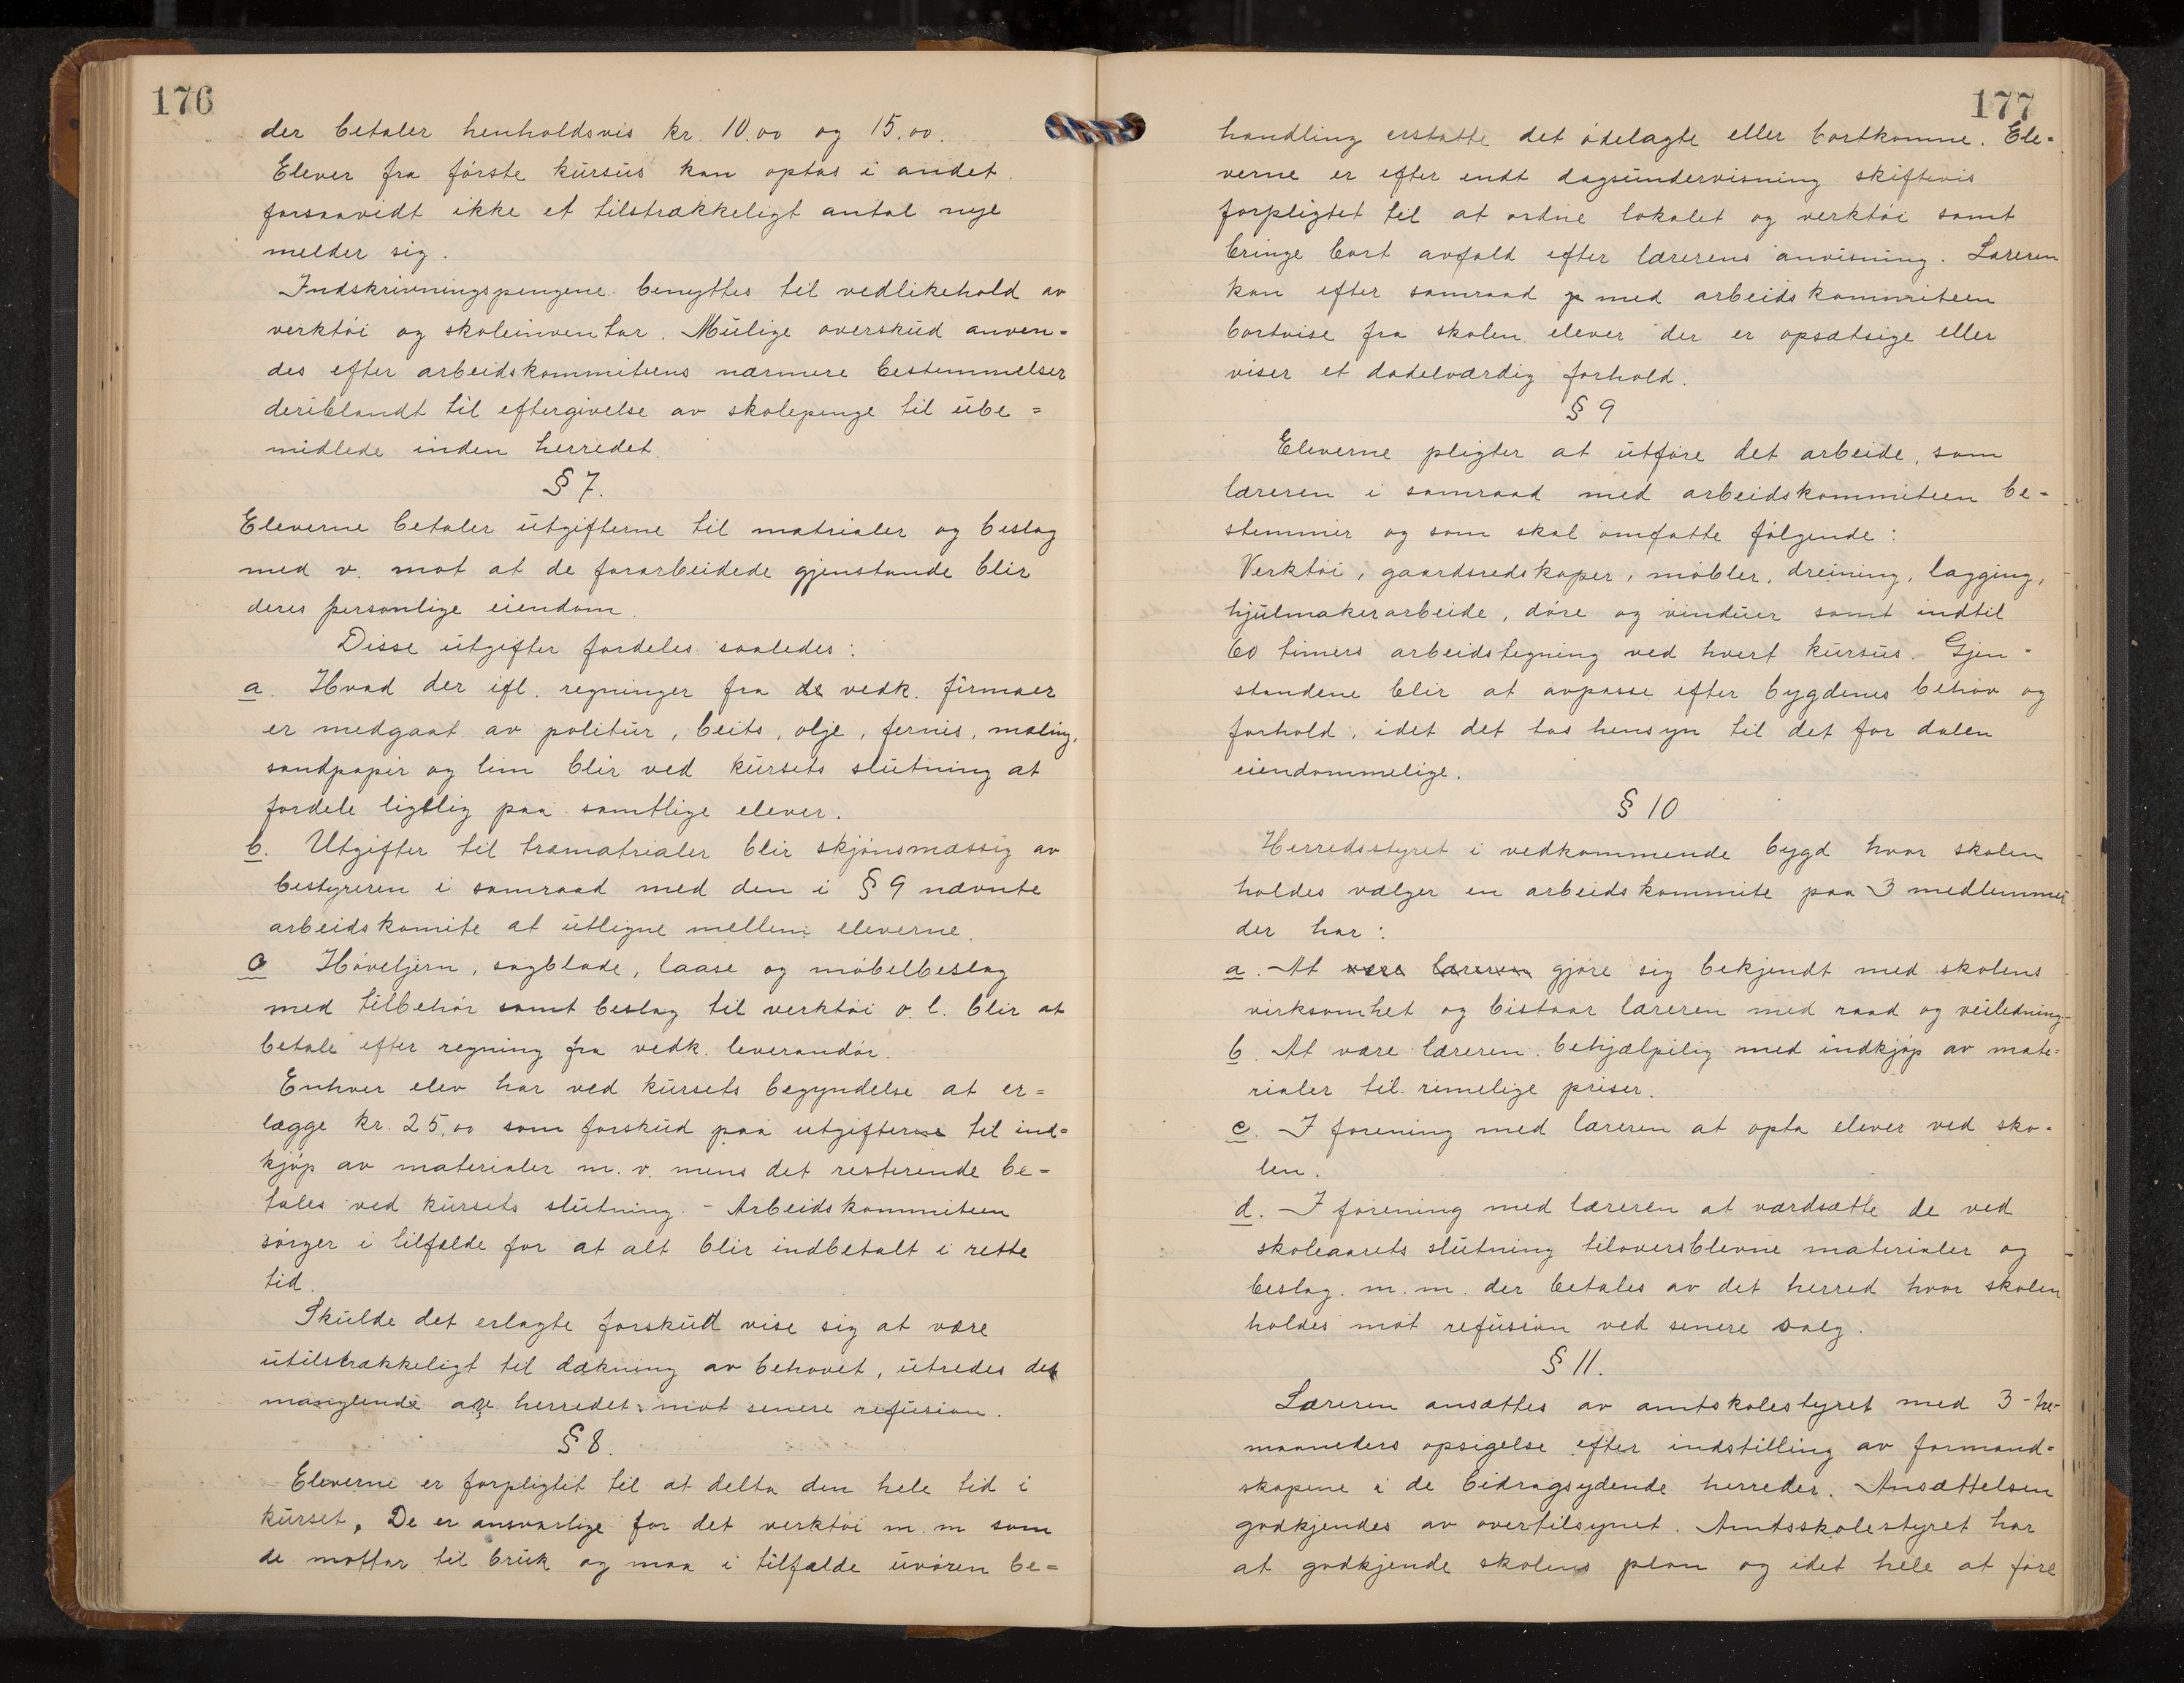 176
der betaler henholdsvis kr. 10.00 og 15.00.
Elever fra første kursus kan optas i andet
forsaavidt ikke et tilstrækkeligt antal nye
melder sig.
Indskrivningspengene benyttes til vedlikehold av
verktøi og skoleinventar. Mulige overskud anven=
des efter arbeidskommiteens nærmere bestemmelser
deriblandt til eftergivelse av skolepenge til ube=
midlede inden herredet.
§ 7.
Eleverne betaler utgifterne til matrialer og beslag
med v. mot at de forarbeidede gjenstande blir
deres personlige eiendom.
Disse utgifter fordeles saaledes:
a. Hvad der ifl. regninger fra de vedk. firmaer
er medgaat av politur, beits, olje, fernis, maling,
sandpapir og lim blir ved kursets slutning at
fordele ligelig paa samtlige elever.
b. Utgifter til træmatrialer blir skjønsmæssig av
bestyreren i samraad med den i § 9 nævnte
arbeidskomite at utligne mellem eleverne.
c Høveljern, sagblade, laase og møbelbeslag
med tilbehør samt beslag til verktøi o. l. blir at
betale efter regning fra vedk. leverandør.
Enhver elev har ved kursets begyndelse at er=
lægge kr. 25,00 som forskud paa utgifterne til ind=
kjøp av materialer m. v. mens det resterende be=
tales ved kursets slutning. - Arbeidskommiteen
sørger i tilfælde for at alt blir indbetalt i rette
tid.
Skulde det erlagte forskud vise sig at være
utilstrækkeligt til dækning av behovet, utredes det
manglende av herredet mot senere refusion.
§ 8.
Eleverne er forpligtet til at delta den hele tid i
kurset. De er ansvarlige for det verktøi m. m som
de mottar til bruk og maa i tilfælde uvøren be=
177
handling erstatte det ødelagte eller bortkomne. Ele=
verne er efter endt dagsundervisning skiftevis
forpligtet til at ordne lokalet og verktøi samt
bringe bort avfald efter lærerens anvisning. Læreren
kan efter samraad med arbeidskommiteen
bortvise fra skolen elever der er opsætsige eller
viser et dadelværdig forhold.
§ 9
Eleverne pligter at utføre det arbeide, som
læreren i samraad med arbeidskommiteen be=
stemmer og som skal omfatte følgende:
Verktøi, gaardsredskaper, møbler, dreining, lagging,
hjulmakerarbeide, døre og vinduer samt indtil
60 timers arbeidstegning ved hvert kursus. Gjen=
standene blir at avpasse efter bygdenes behov og
forhold, idet det tas hensyn til det for dalen
eiendommelige.
§ 10
Herredsstyret i vedkommende bygd hvor skolen
holdes vælger en arbeidskommite paa 3 medlemmer
der har:
a. At være læreren gjøre sig bekjendt med skolens
virksomhet og bistaar læreren med raad og veiledning.
b. At være læreren behjælpilig med indkjøp av mate=
rialer til rimelige priser.
c. I forening med læreren at opta elever ved sko=
len.
d. I forening med læreren at værdsætte de ved
skoleaarets slutning tiloversblevne materialer og
beslag m. m. der betales av det herred hvor skolen
holdes mot refusion ved senere salg.
§ 11.
Læreren ansættes av amtskolestyret med 3-tre-
maaneders opsigelse efter indstilling av formand=
skapene i de bidragsydende herreder. Ansættelsen
godkjendes av overtilsynet. Amtsskolestyret har
at godkjende skolens plan og idet hele at føre